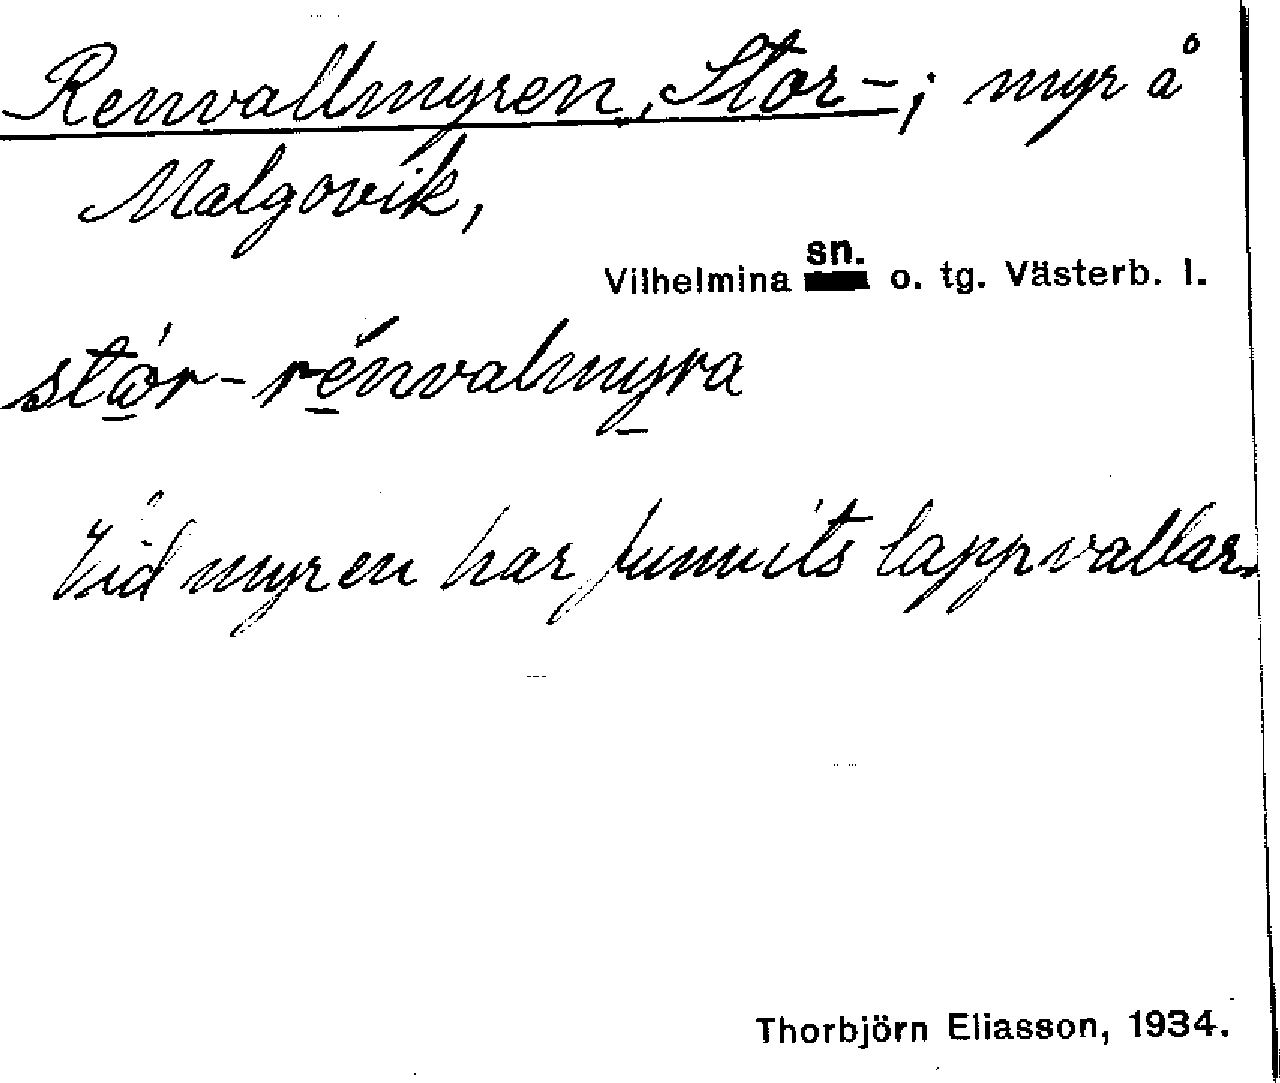 Renvallmyren, Stor-; myr å
Malgovik,
Vilhelmina sn. o. tg. Västerb. l.
stór-rénvalmyra
Vid myren har funnits lappvallar.
Thorbjörn Eliasson, 1934.